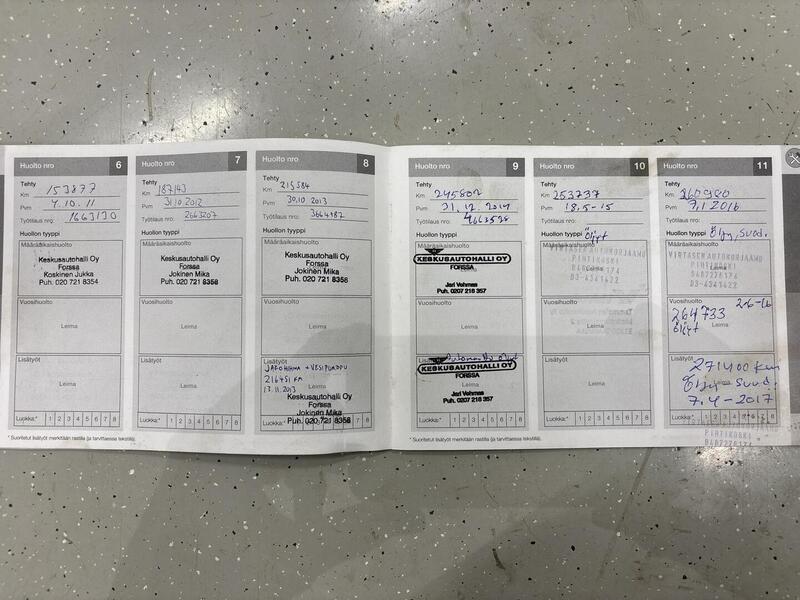 Huolto nro 6
Tehty
Km 153877
Pvm 4.10.11
Työtilaus nro: 1663130
Huollon tyyppi
Määräaikaishuolto
Keskusautohalli Oy
Forssa
Koskinen Jukka
Puh. 020 721 8354
Vuosihuolto
Leima
Lisätyöt
Leima
Luokka:* 1 2 3 4 5 6 7 8
* Suoritetut lisätyöt merkitään rastilla (ja tarvittaessa tekstillä).
Huolto nro 7
Tehty
Km 187143
Pvm 31.10.2012
Työtilaus nro: 2663207
Huollon tyyppi
Määräaikaishuolto
Keskusautohalli Oy
Forssa
Jokinen Mika
Puh. 020 721 8358
Vuosihuolto
Leima
Lisätyöt
Leima
Luokka:* 1 2 3 4 5 6 7 8
Huolto nro 8
Tehty
Km 215584
Pvm 30.10.2013
Työtilaus nro: 3664982
Huollon tyyppi
Määräaikaishuolto
Keskusautohalli Oy
Forssa
Jokinen Mika
Puh. 020 721 8358
Vuosihuolto
Leima
Lisätyöt
JAKOHIHNA + VESIPUMPPU
216451 KM
13.11.2013
Keskusautohalli Oy
Forssa
Jokinen Mika
Puh. 020 721 8358
Luokka:* 1 2 3 4 5 6 7 8
Huolto nro 9
Tehty
Km 245802
Pvm 31.12.2014
Työtilaus nro: 4663538
Huollon tyyppi
Määräaikaishuolto
KESKUSAUTOHALLI OY
FORSSA
Jari Vehmas
Puh. 0207 218 357
Vuosihuolto
Leima
Lisätyöt
KESKUSAUTOHALLI OY
FORSSA
Jari Vehmas
Puh. 0207 218 357
Luokka:* 1 2 3 4 5 6 7 8
* Suoritetut lisätyöt merkitään rastilla (ja tarvittaessa tekstillä).
Huolto nro 10
Tehty
Km 253737
Pvm 18.5-15
Työtilaus nro:
Huollon tyyppi Öljyt
Määräaikaishuolto
VIRTASEN AUTOKORJAAMO
Vuosihuolto
Leima
Lisätyöt
Leima
Luokka:* 1 2 3 4 5 6 7 8
Huolto nro 11
Tehty
Km 260980
Pvm 7.1 2016
Työtilaus nro:
Huollon tyyppi Öljy, suod.
Määräaikaishuolto
VIRTASEN AUTOKORJAAMO
Vuosihuolto
264733
Öljyt
Leima
Lisätyöt
271400 km
Öljy suod.
7.4-2017
Luokka:* 1 2 3 4 5 6 7 8